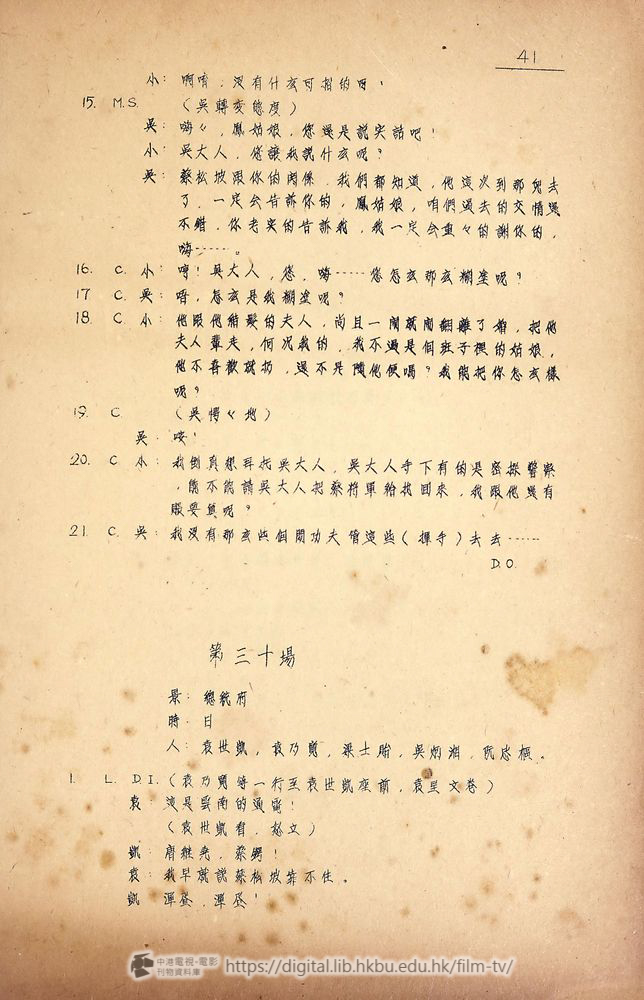 41
小: 啊唷，沒有什么可招的呀，
15. M.S. （吳轉变態度）
吳: 嗨々，鳳姑娘，您還是說实話吧！
小: 吳大人，您讓我說什么呢？
吳: 蔡松坡跟你的関係，我們都知道，他這次到那兒去
了，一定会告訴你的，鳳姑娘，咱們过去的交情還
不錯，你老实的告訴我，我一定会重々的謝你的，
嗨……。
16. C. 小: 哼！吳大人，您，嗨……您怎么那么糊塗呢？
17 C. 吳: 唔，怎么是我糊塗呢？
18. C. 小: 他跟他結髮的夫人，尚且一鬧就鬧翻離了婚，把他
夫人輦走，何况我的，我不過是個班子裡的姑娘，
他不喜歡就扔，還不是隨他便嗎？我能把你怎么樣
呢？
19. C. （吳愕々地）
吳: 唉！
20. C 小: 我倒真想拜托吳大人，吳大人手下有的是密探警察
，能不能請吳大人把蔡將軍給找回來，我跟他還有
賬要算呢？
21. C. 吳: 我沒有那么些個閒功夫管這些（揮手）去去……
D.O.
第三十場
景: 總統府
時: 日
人: 袁世凱，袁乃寬，梁士詒，吳炳湘，阮忠樞。
1. L. D I. （袁乃寬等一行至袁世凱座前，袁呈文卷）
袁: 這是雲南的通電！
（袁世凱看，怒文）
凱: 唐継堯，蔡鍔！
袁: 我早就說蔡松坡靠不住。
凱 渾蛋，渾蛋！
中港電視·電影
刊物資料庫
https://digital.lib.hkbu.edu.hk/film-tv/